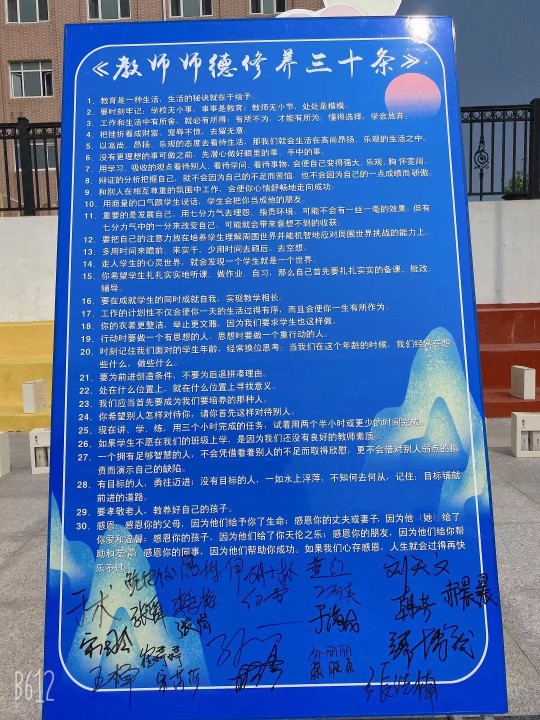 《教师师德修养三十条》
1、教育是一种生活，生活的秘诀就在于给予。
2、要时刻牢记：学校无小事，事事是教育；教师无小节，处处是楷模。
3、工作和生活中有所舍，就必有所得；有所不为，才能有所为，懂得选择，学会放弃。
4、把挫折看成财富，宠辱不惊，去留无意。
5、以高尚、昂扬、乐观的态度去看待生活，那我们就会生活在高尚昂扬、乐观的生活之中。
6、没有更理想的事可做之前，先潜心做好眼里的事，手中的事。
7、用学习，吸收的观点看待别人，看待学问，看待事物，会使自己变得强大、乐观，胸怀宽阔。
8、辩证的分析把握自己，就不会因为自己的不足而苦恼，也不会因为自己的一点成绩而骄傲。
9、和别人在相互尊重的氛围中工作，会使你心情舒畅地走向成功。
10、用商量的口气跟学生说话，学生会把你当成他的朋友。
11、重要的是发展自己，用七分力气去埋怨、指责环境，可能不会有一丝一毫的效果，但有
七分力气中的一分来改变自己，可能就会带来意想不到的收获。
12、要把自己的注意力放在培养学生理解周围世界并能机智地应对周围世界挑战的能力上。
13、多用时间来瞻前、来实干，少用时间去顾后、去空想。
14、走入学生的心灵世界，就会发现一个学生就是一个世界。
15、你希望学生扎扎实实地听课，做作业，自习，那么自己首先要扎扎实实的备课，批改，
辅导。
16、要在成就学生的同时成就自我，实现教学相长。
17、工作的计划性不仅会使你一天的生活过得有序，而且会使你一生有所作为。
18、你的衣着更整洁，举止更文雅，因为我们要求学生也这样做。
19、行动时要做一个有思想的人，思想时要做一个重行动的人。
20、时刻记住我们面对的学生年龄，经常换位思考，当我们在这个年龄的时候，我们经常在想
些什么，做些什么。
21、要为前进创造条件，不要为后退拼凑理由。
22、处在什么位置上，就在什么位置上寻找意义。
23、我们应当首先要成为我们要培养的那种人。
24、你希望别人怎样对待你，请你首先这样对待别人。
25、现在讲、学、练，用三个小时完成的任务，试着用两个半小时或更少的时间完成。
26、如果学生不愿在我们的班级上学，是因为我们还没有良好的教师素质。
27、一个拥有足够智慧的人，不会凭借看着别人的不足而取得欣慰，更不会借对别人弱点的指
责而演示自己的缺陷。
28、有目标的人，勇往迈进；没有目标的人，一如水上浮萍，不知何去何从，记住：目标铺就
前进的道路。
29、要孝敬老人，教养好自己的孩子。
30、感恩，感恩你的父母，因为他们给予你了生命；感恩你的丈夫或妻子，因为他（她）给了
你爱和温馨；感恩你的孩子，因为他们给了你天伦之乐；感恩你的朋友，因为他们给你帮
助和友谊；感恩你的同事，因为他们帮助你成功。如果我们心存感恩，人生就会过得再快
乐不过
B612